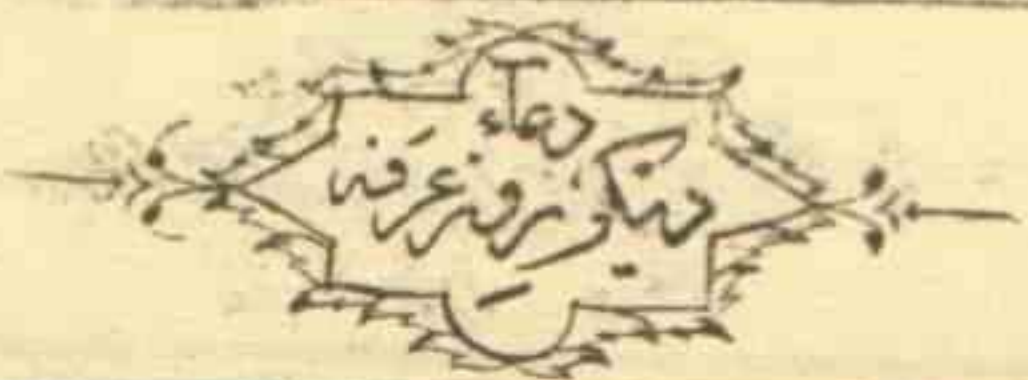 دعاء
دیگر روز عرفه